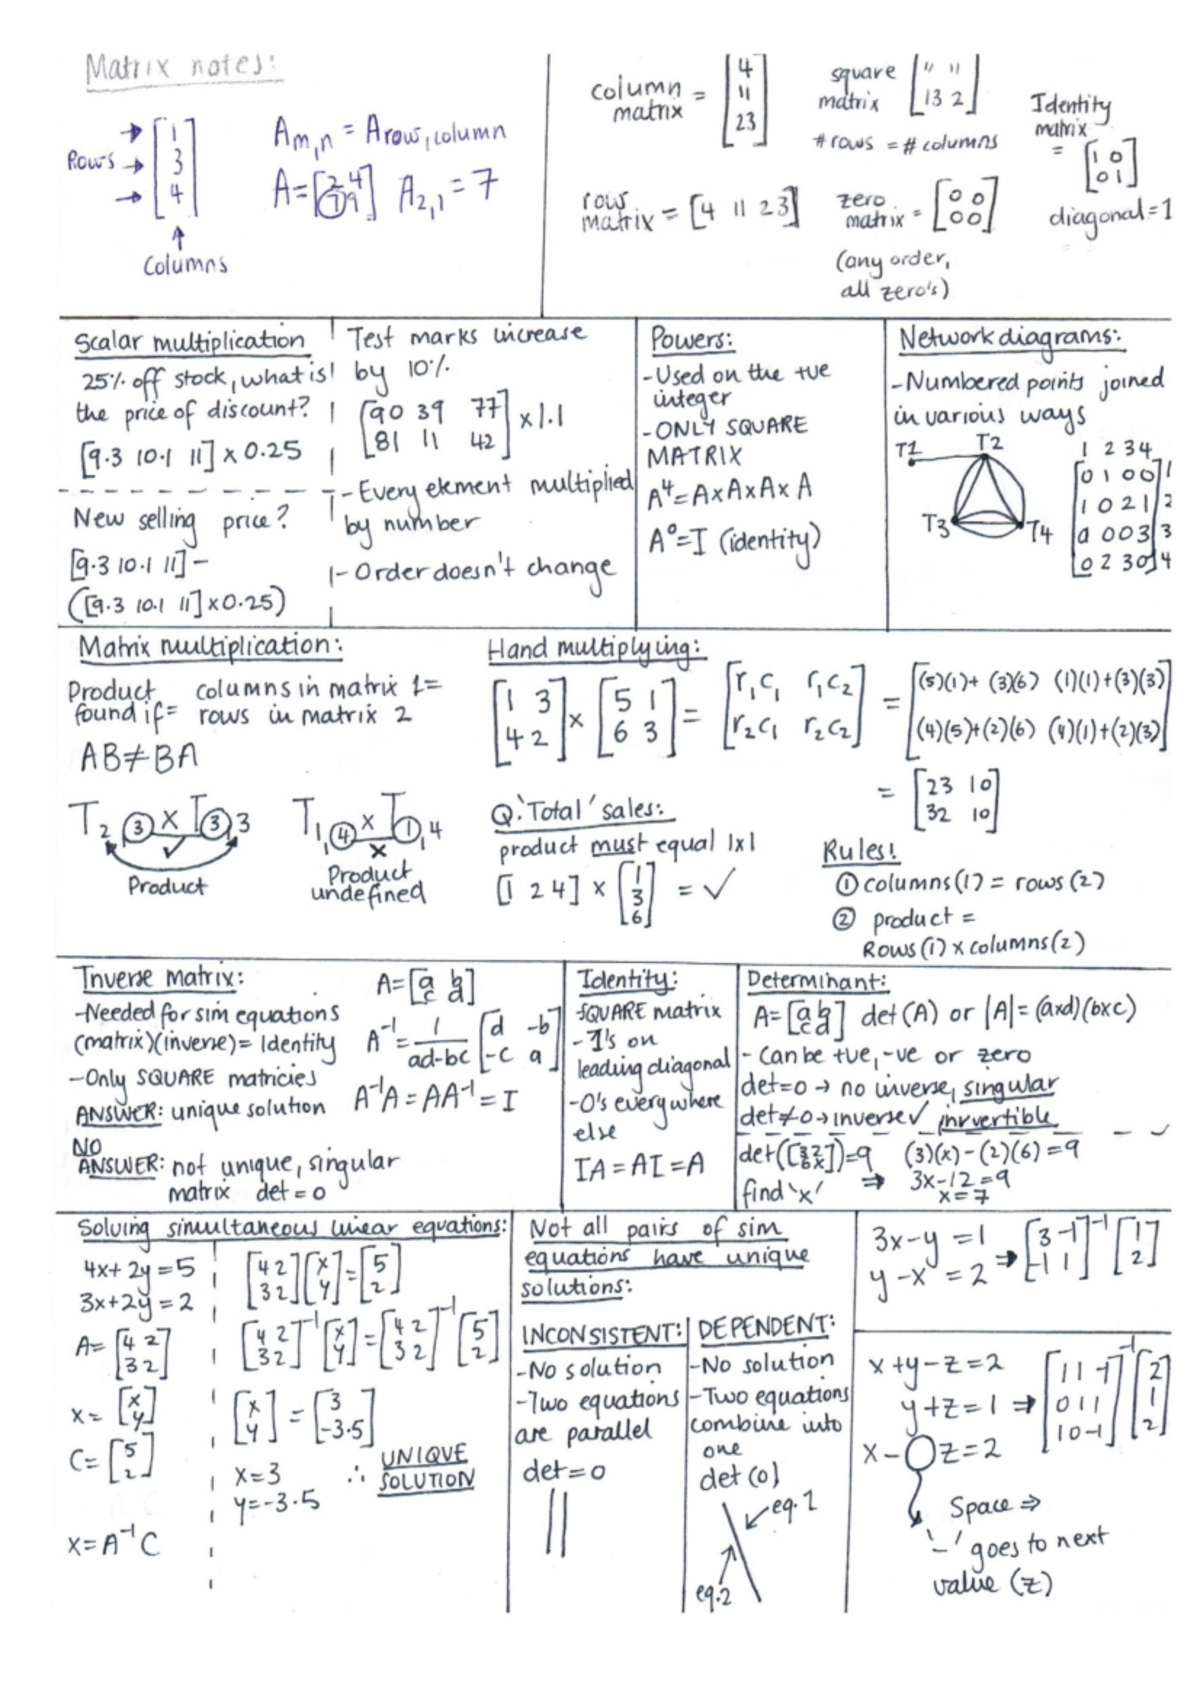 Matrix notes:
Rows → [1 3 4]
↑
Columns
Am,n = Arow,column
A=[2 4
7 9] A2,1 = 7
column matrix = [4
11
23]
square matrix [" "
13 2]
#rows = #columns
Identity matrix = [1 0
0 1]
diagonal=1
row matrix = [4 11 23]
zero matrix = [0 0
0 0]
(any order,
all zero's)
Scalar multiplication
25% off stock, what is
the price of discount?
[9.3 10.1 11] x 0.25
New selling price?
[9.3 10.1 11] -
([9.3 10.1 11] x0.25)
Test marks increase
by 10%
[90 39 77
81 11 42] x 1.1
- Every element multiplied
by number
- Order doesn't change
Powers:
-Used on the +ve
integer
-ONLY SQUARE
MATRIX
A⁴=AxAxAxA
A⁰=I (identity)
Network diagrams:
-Numbered points joined
in various ways
T1 T2
T3 T4
1 2 3 4
[0 1 0 0] 1
[1 0 2 1] 2
[0 0 0 3] 3
[0 2 3 0] 4
Matrix multiplication:
Product found if = columns in matrix 1=
rows in matrix 2
AB≠BA
T2,3 x T3,3
✓
Product
T1,4 x T1,4
x
Product
undefined
Hand multiplying:
[1 3
4 2] x [5 1
6 3] = [r₁c₁ r₁c₂
r₂c₁ r₂c₂] = [(5)(1)+(3)(6) (1)(1)+(3)(3)
(4)(5)+(2)(6) (4)(1)+(2)(3)]
= [23 10
32 10]
Q:'Total' sales:
product must equal 1x1
[1 2 4] x [1
3
6] = ✓
Rules!
① columns(1) = rows(2)
② product =
Rows(1) x columns(2)
Inverse matrix:
-Needed for sim equations
(matrix)(inverse)= Identity
-Only SQUARE matricies
ANSWER: unique solution
NO
ANSWER: not unique, singular
matrix det=0
A=[a b
c d]
A⁻¹= 1/ad-bc [d -b
-c a]
A⁻¹A = AA⁻¹ = I
Identity:
-SQUARE matrix
-1's on
leading diagonal
-0's everywhere
else
IA = AI = A
Determinant:
A=[a b
c d] det(A) or |A|= (axd)(bxc)
- Can be +ve, -ve or zero
det=0 → no inverse, singular
det≠0→inverse✓ invertible
det([3 2
6 x])=9 (3)(x)-(2)(6)=9
find 'x' ⇒ 3x-12=9
x=7
Solving simultaneous linear equations:
4x+2y=5
3x+2y=2
A= [4 2
3 2]
x= [x
y]
C= [5
2]
x= A⁻¹C
[4 2
3 2] [x
y] = [5
2]
[4 2
3 2]⁻¹ [x
y] = [4 2
3 2]⁻¹ [5
2]
[x
y] = [3
-3.5]
x=3
y=-3.5
∴ UNIQUE
SOLUTION
Not all pairs of sim
equations have unique
solutions:
INCONSISTENT:
-No solution
-Two equations
are parallel
det=0
DEPENDENT:
-No solution
-Two equations
combine into
one
det(0)
eq.1
eq.2
3x-y=1
y-x=2 ⇒ [3 -1
-1 1]⁻¹ [1
2]
x+y-z=2
y+z=1 ⇒ [1 1 -1
0 1 1
1 0 -1]⁻¹ [2
1
2]
x- z=2
Space ⇒
'-' goes to next
value (z)